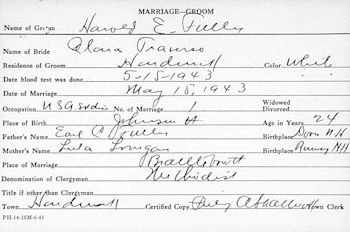 MARRIAGE—GROOM
Name of Groom Harold E. Fuller
Name of Bride Clara
Residence of Groom Hardwick Color White
Date blood test was done 5-15-1943
Date of Marriage May 15, 1943
Occupation USA Soldier No. of Marriage 1 Widowed Divorced
Place of Birth Johnson Vt Age in Years 24
Father's Name Earl C Fuller Birthplace N H
Mother's Name Lula Birthplace N H
Place of Marriage Brattleboro Vt
Denomination of Clergyman Methodist
Title if other than Clergyman
Town Hardwick Certified Copy Town Clerk
PH-14-10M-6-41